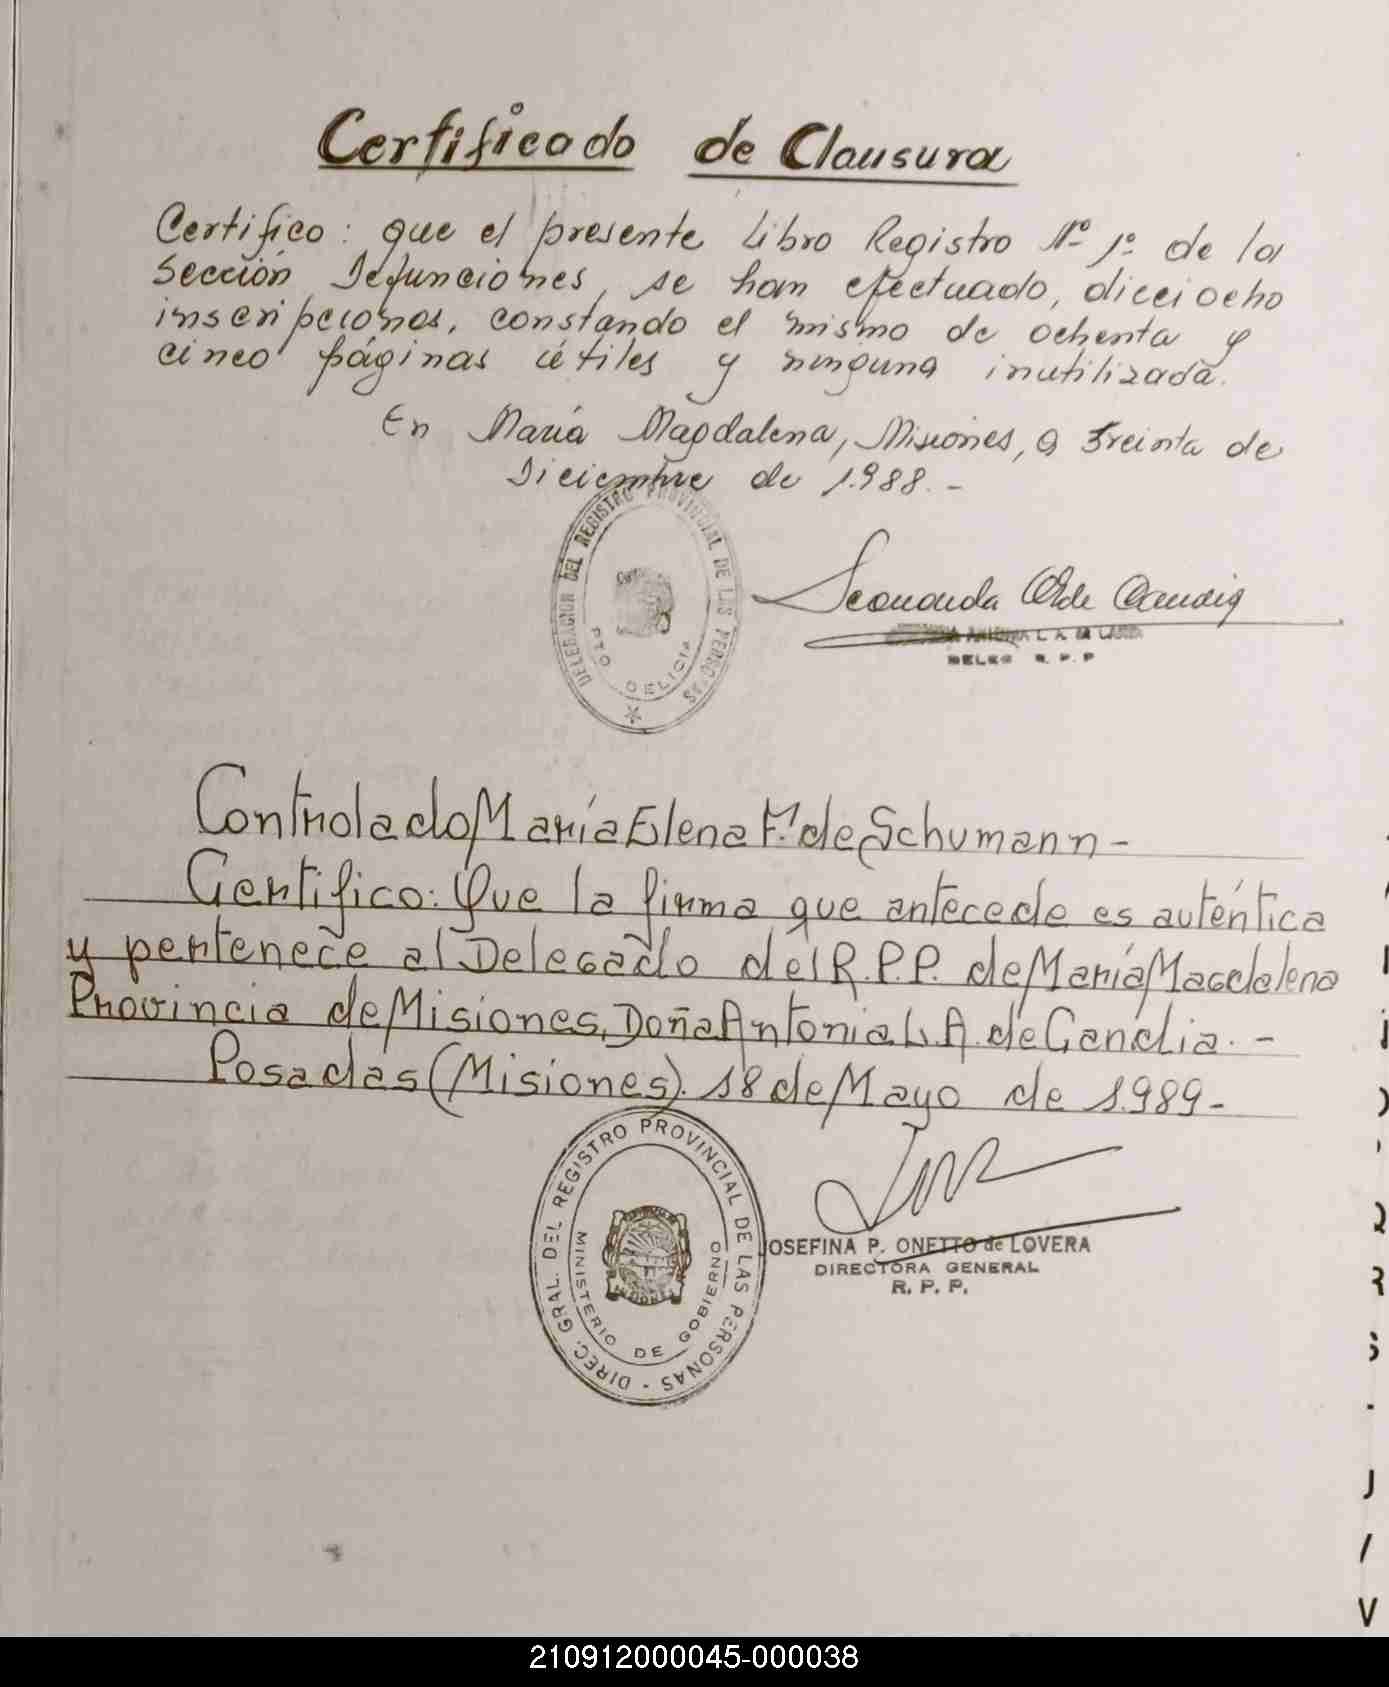 Certificado de Clausura
Certifico: que el presente Libro Registro Nº 1º de la
Sección Defunciones, se han efectuado, diceiocho
inscripciones, constando el mismo de ochenta y
cinco páginas útiles y ninguna inutilizada.
En María Magdalena, Misiones, a treinta de
Diciembre de 1.988.-
DELEGACION DEL REGISTRO PROVINCIAL DE LAS PERSONAS
PTO DELICIA
ANTONIA L. A. de
DELEG R. P. P
Controlado María Elena F. de Schumann-
Certifico: Que la firma que antecede es auténtica
y pertenece al Delegado del R.P.P. de María Magdalena
Provincia de Misiones, Doña Antonia L. A. de Candia.-
Posadas (Misiones). 18 de Mayo de 1.989-
DIREC. GRAL. DEL REGISTRO PROVINCIAL DE LAS PERSONAS -
MINISTERIO DE GOBIERNO
JOSEFINA P. ONETTO de LOVERA
DIRECTORA GENERAL
R. P. P.
Q
R
S
J
V
210912000045-000038